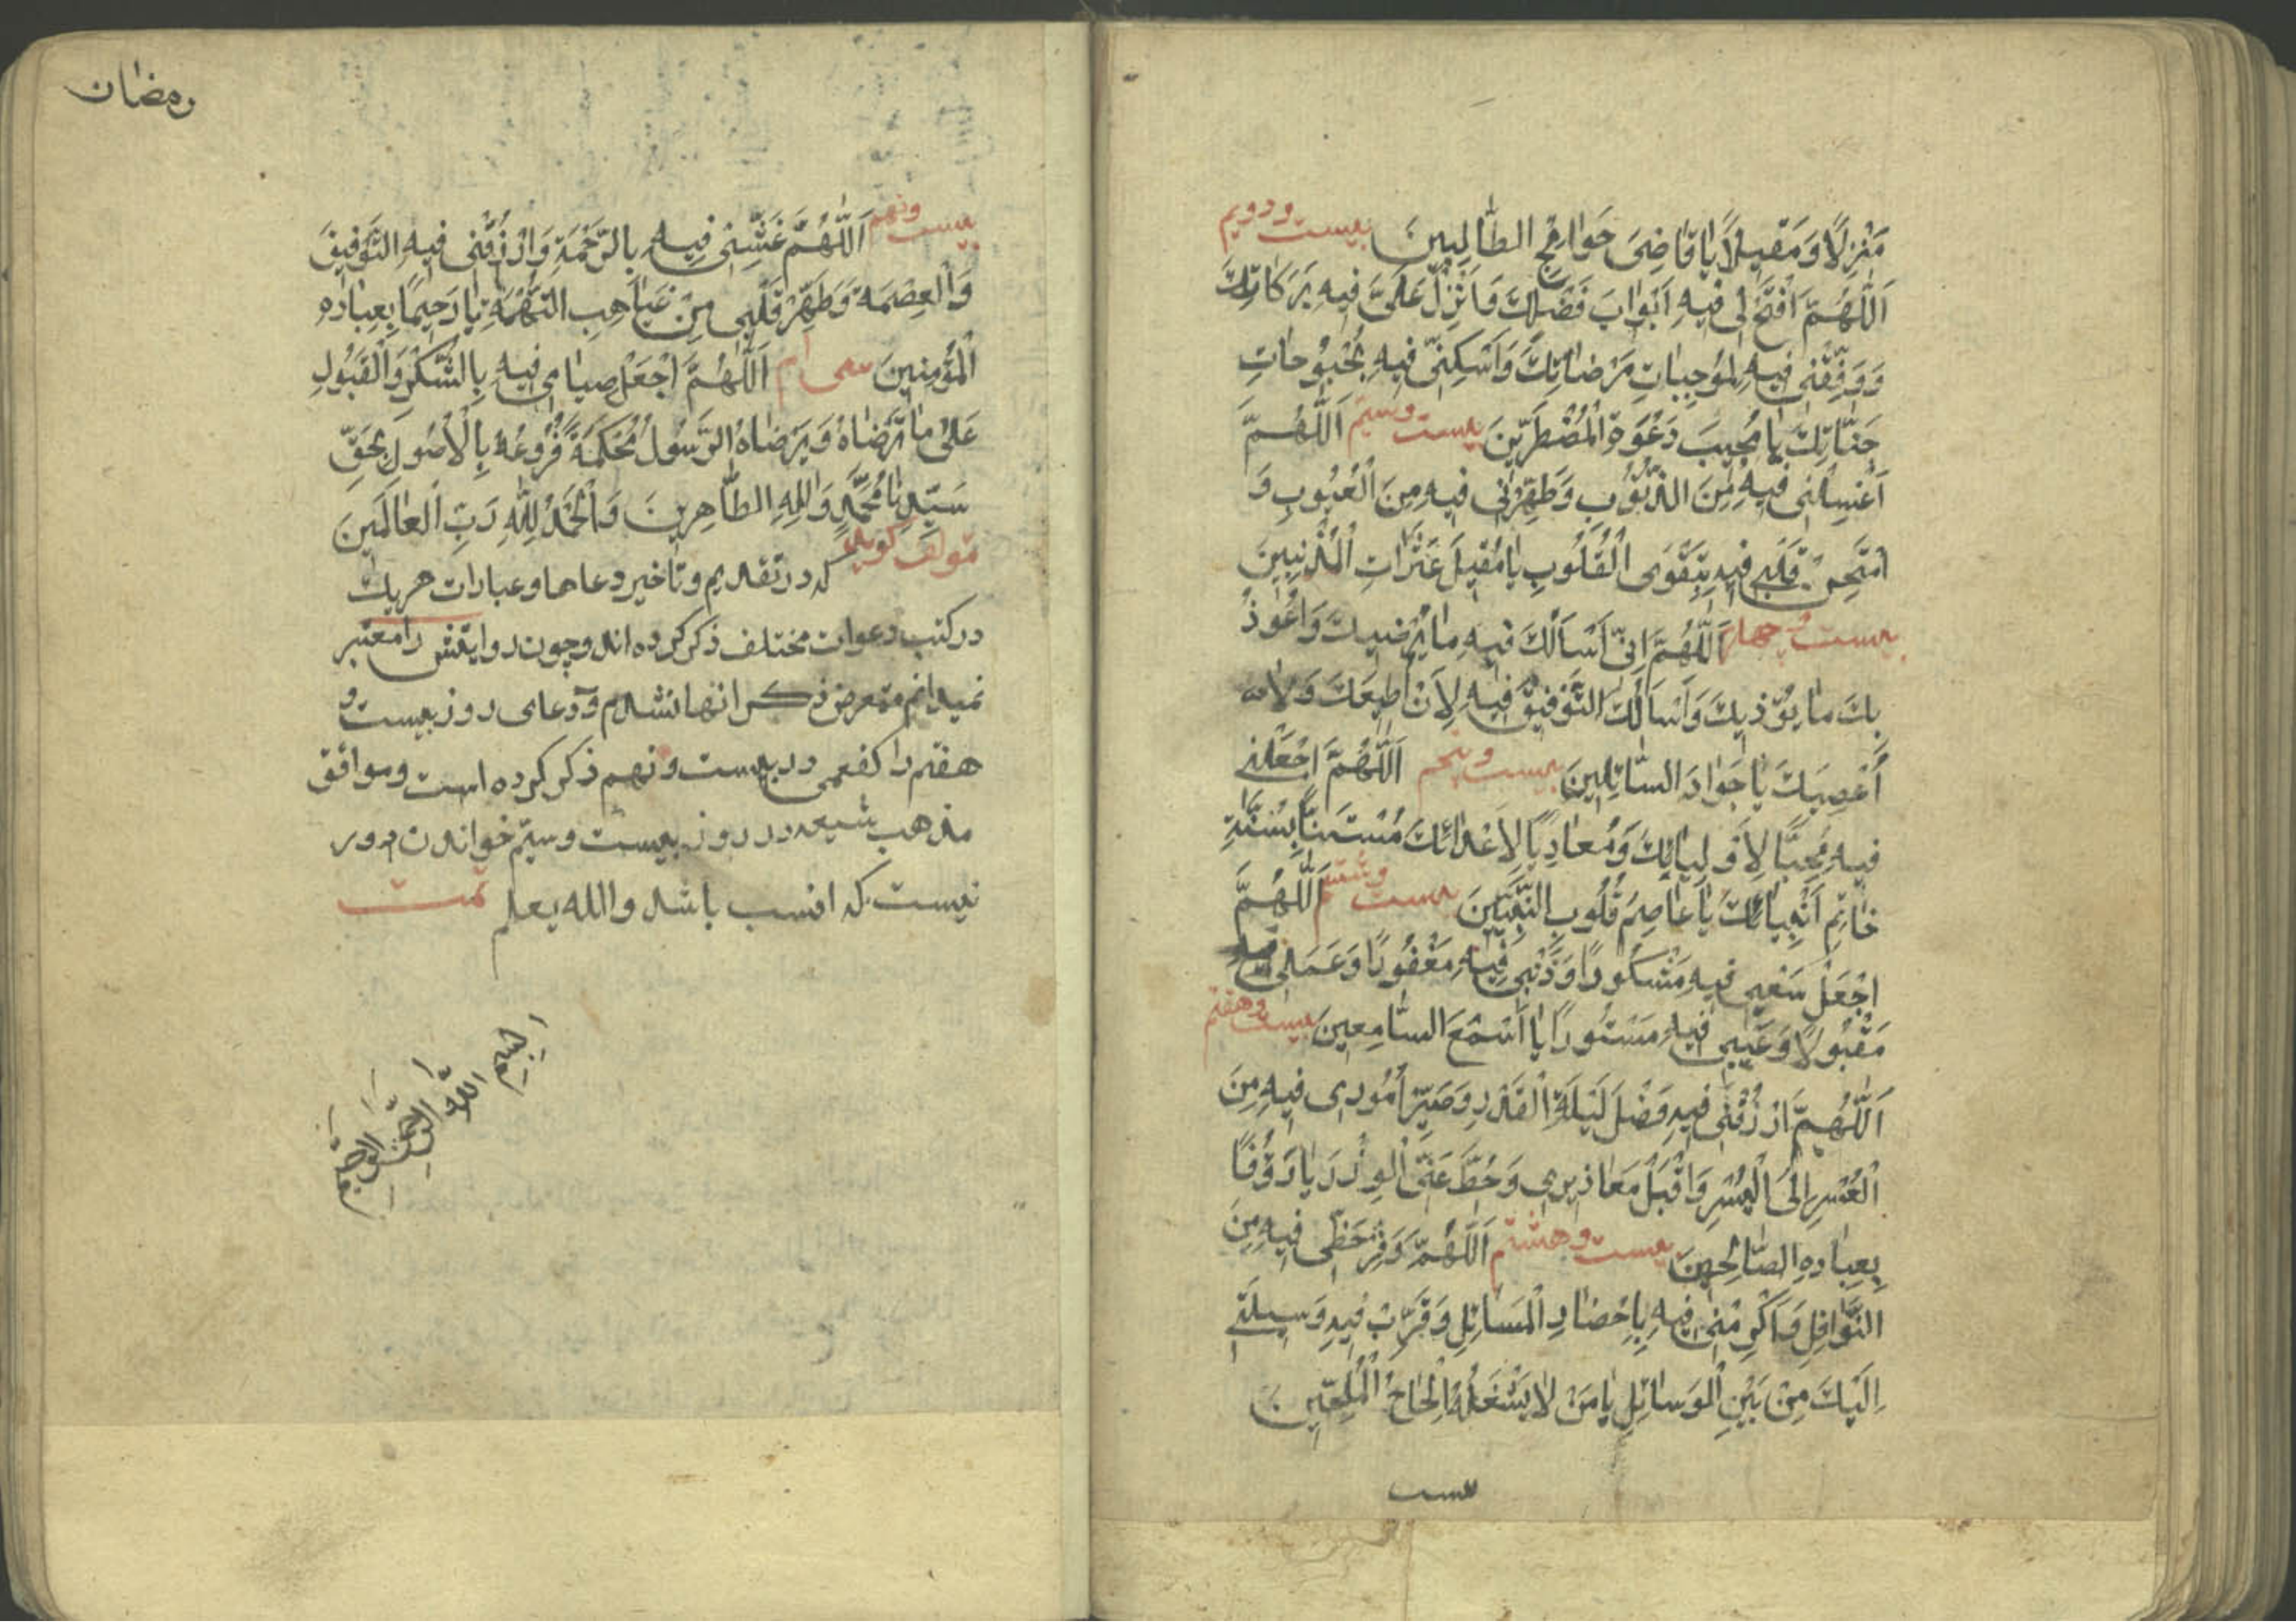 مَنْزِلًا وَ مَقیلًا یا قاضِیَ حَوائِجِ الطّالِبینَ بیست و دویم
اَللّٰهُمَّ افْتَحْ لی فیهِ اَبْوابَ فَضْلِکَ وَ اَنْزِلْ عَلَیَّ فیهِ بَرَکاتِکَ
وَ وَفِّقْنی فیهِ لِمُوجِباتِ مَرْضاتِکَ وَ اَسْکِنّی فیهِ بُحْبُوحاتِ
جَنّاتِکَ یا مُجیبَ دَعْوَةِ الْمُضْطَرّینَ بیست و سیم اَللّٰهُمَّ
اغْسِلْنی فیهِ مِنَ الذُّنُوبِ وَ طَهِّرْنی فیهِ مِنَ الْعُیُوبِ وَ
امْتَحِنْ قَلْبی فیهِ بِتَقْوَی الْقُلُوبِ یا مُقیلَ عَثَراتِ الْمُذْنِبینَ
بیست و چهارم اَللّٰهُمَّ اِنّی اَسْأَلُکَ فیهِ ما یُرْضیکَ وَ اَعُوذُ
بِکَ ما یُؤْذیکَ وَ اَسْأَلُکَ التَّوْفیقَ فیهِ لِاَنْ اُطیعَکَ وَ لا
اَعْصِیَکَ یا جَوادَ السّائِلینَ بیست و پنجم اَللّٰهُمَّ اجْعَلْنی
فیهِ مُحِبًّا لِاَوْلِیائِکَ وَ مُعادِیًا لِاَعْدائِکَ مُسْتَنًّا بِسُنَّةِ
خاتِمِ اَنْبِیائِکَ یا عاصِمَ قُلُوبِ النَّبِیّینَ بیست و ششم اَللّٰهُمَّ
اجْعَلْ سَعْیی فیهِ مَشْکُورًا وَ ذَنْبی فیهِ مَغْفُورًا وَ عَمَلی فیه
مَقْبُولًا وَ عَیْبی فیهِ مَسْتُورًا یا اَسْمَعَ السّامِعینَ بیست و هفتم
اَللّٰهُمَّ ارْزُقْنی فیهِ فَضْلَ لَیْلَةِ الْقَدْرِ وَ صَیِّرْ اُمُوری فیهِ مِنَ
الْعُسْرِ اِلَی الْیُسْرِ وَ اقْبَلْ مَعاذیری وَ حُطَّ عَنِّی الْوِزْرَ یا رَؤُفًا
بِعِبادِهِ الصّالِحینَ بیست و هشتم اَللّٰهُمَّ وَفِّرْ حَظّی فیهِ مِنَ
النَّوافِلِ وَ اَکْرِمْنی فیهِ بِاِحْضارِ الْمَسائِلِ وَ قَرِّبْ فیهِ وَسیلَتی
اِلَیْکَ مِنْ بَیْنِ الْوَسائِلِ یا مَنْ لا یَشْغَلُهُ اِلْحاحُ الْمُلِحّینَ
بیست
رمضان
بیست و نهم اَللّٰهُمَّ غَشِّنی فیهِ بِالرَّحْمَةِ وَ ارْزُقْنی فیهِ التَّوْفیقَ
وَ الْعِصْمَةَ وَ طَهِّرْ قَلْبی مِنْ غَیاهِبِ التُّهْمَةِ یا رَحیمًا بِعِبادِهِ
الْمُؤْمِنینَ سی ام اَللّٰهُمَّ اجْعَلْ صِیامی فیهِ بِالشُّکْرِ وَ الْقَبُولِ
عَلیٰ ما تَرْضاهُ وَ یَرْضاهُ الرَّسُولُ مُحْکَمَةً فُرُوعُهُ بِالْاُصُولِ بِحَقِّ
سَیِّدِنا مُحَمَّدٍ وَ آلِهِ الطّاهِرینَ وَ الْحَمْدُ لِلّٰهِ رَبِّ الْعالَمینَ
مولف گوید که در تقدیم و تاخیر دعاها و عبارات هر یک
در کتب دعوات مختلف ذکر کرده اند و چون روایتش را معتبر
نمیدانم متعرض ذکر انها نشدم و دعای روز بیست و
هفتم را کفعمی در بیست و نهم ذکر کرده است و موافق
مذهب شیعه در روز بیست و سیم خواندن دور
نیست که انسب باشد والله یعلم تمت
بِسْمِ اللّٰهِ الرَّحْمٰنِ الرَّحیمِ